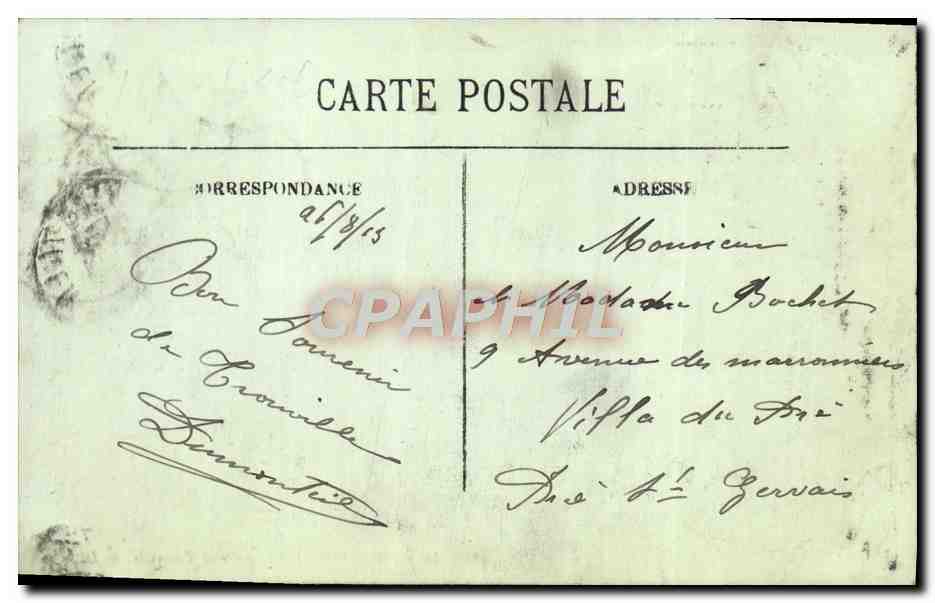 CARTE POSTALE
CORRESPONDANCE
26/8/13
Bon
Souvenir
de Trouville
Dumonteil
ADRESSE
Monsieur
et Madame Bochet
9 Avenue des marronniers
Villa du Pré
Pré St Gervais
CPAPHIL